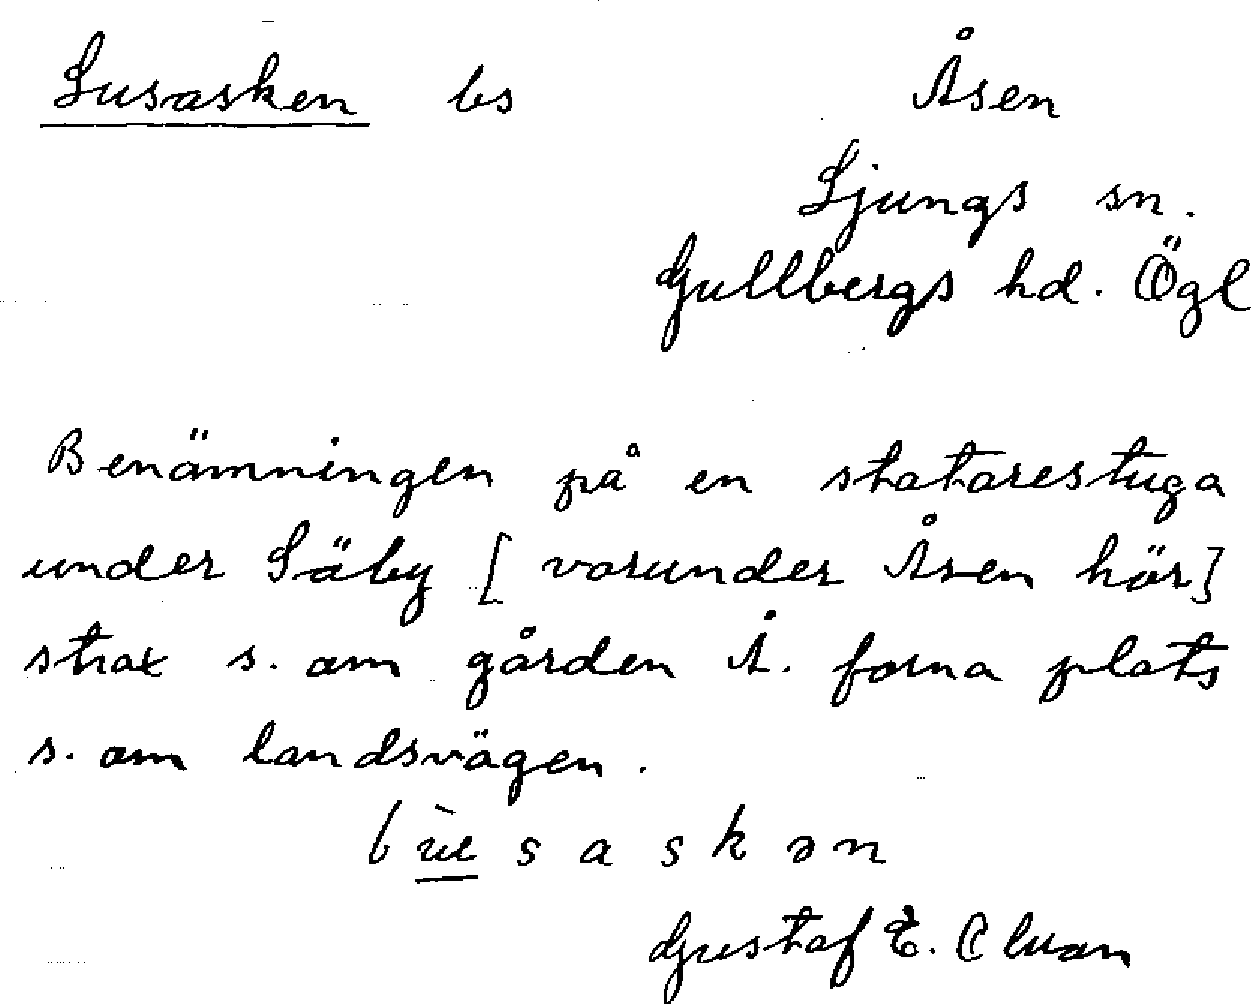 Lusasken bs Åsen
Ljungs sn.
Gullbergs hd. Ögl
Benämningen på en statarestuga
under Säby [varunder Åsen hör]
strax s. om gården Å. forna plats
s. om landsvägen.
Gustaf E.